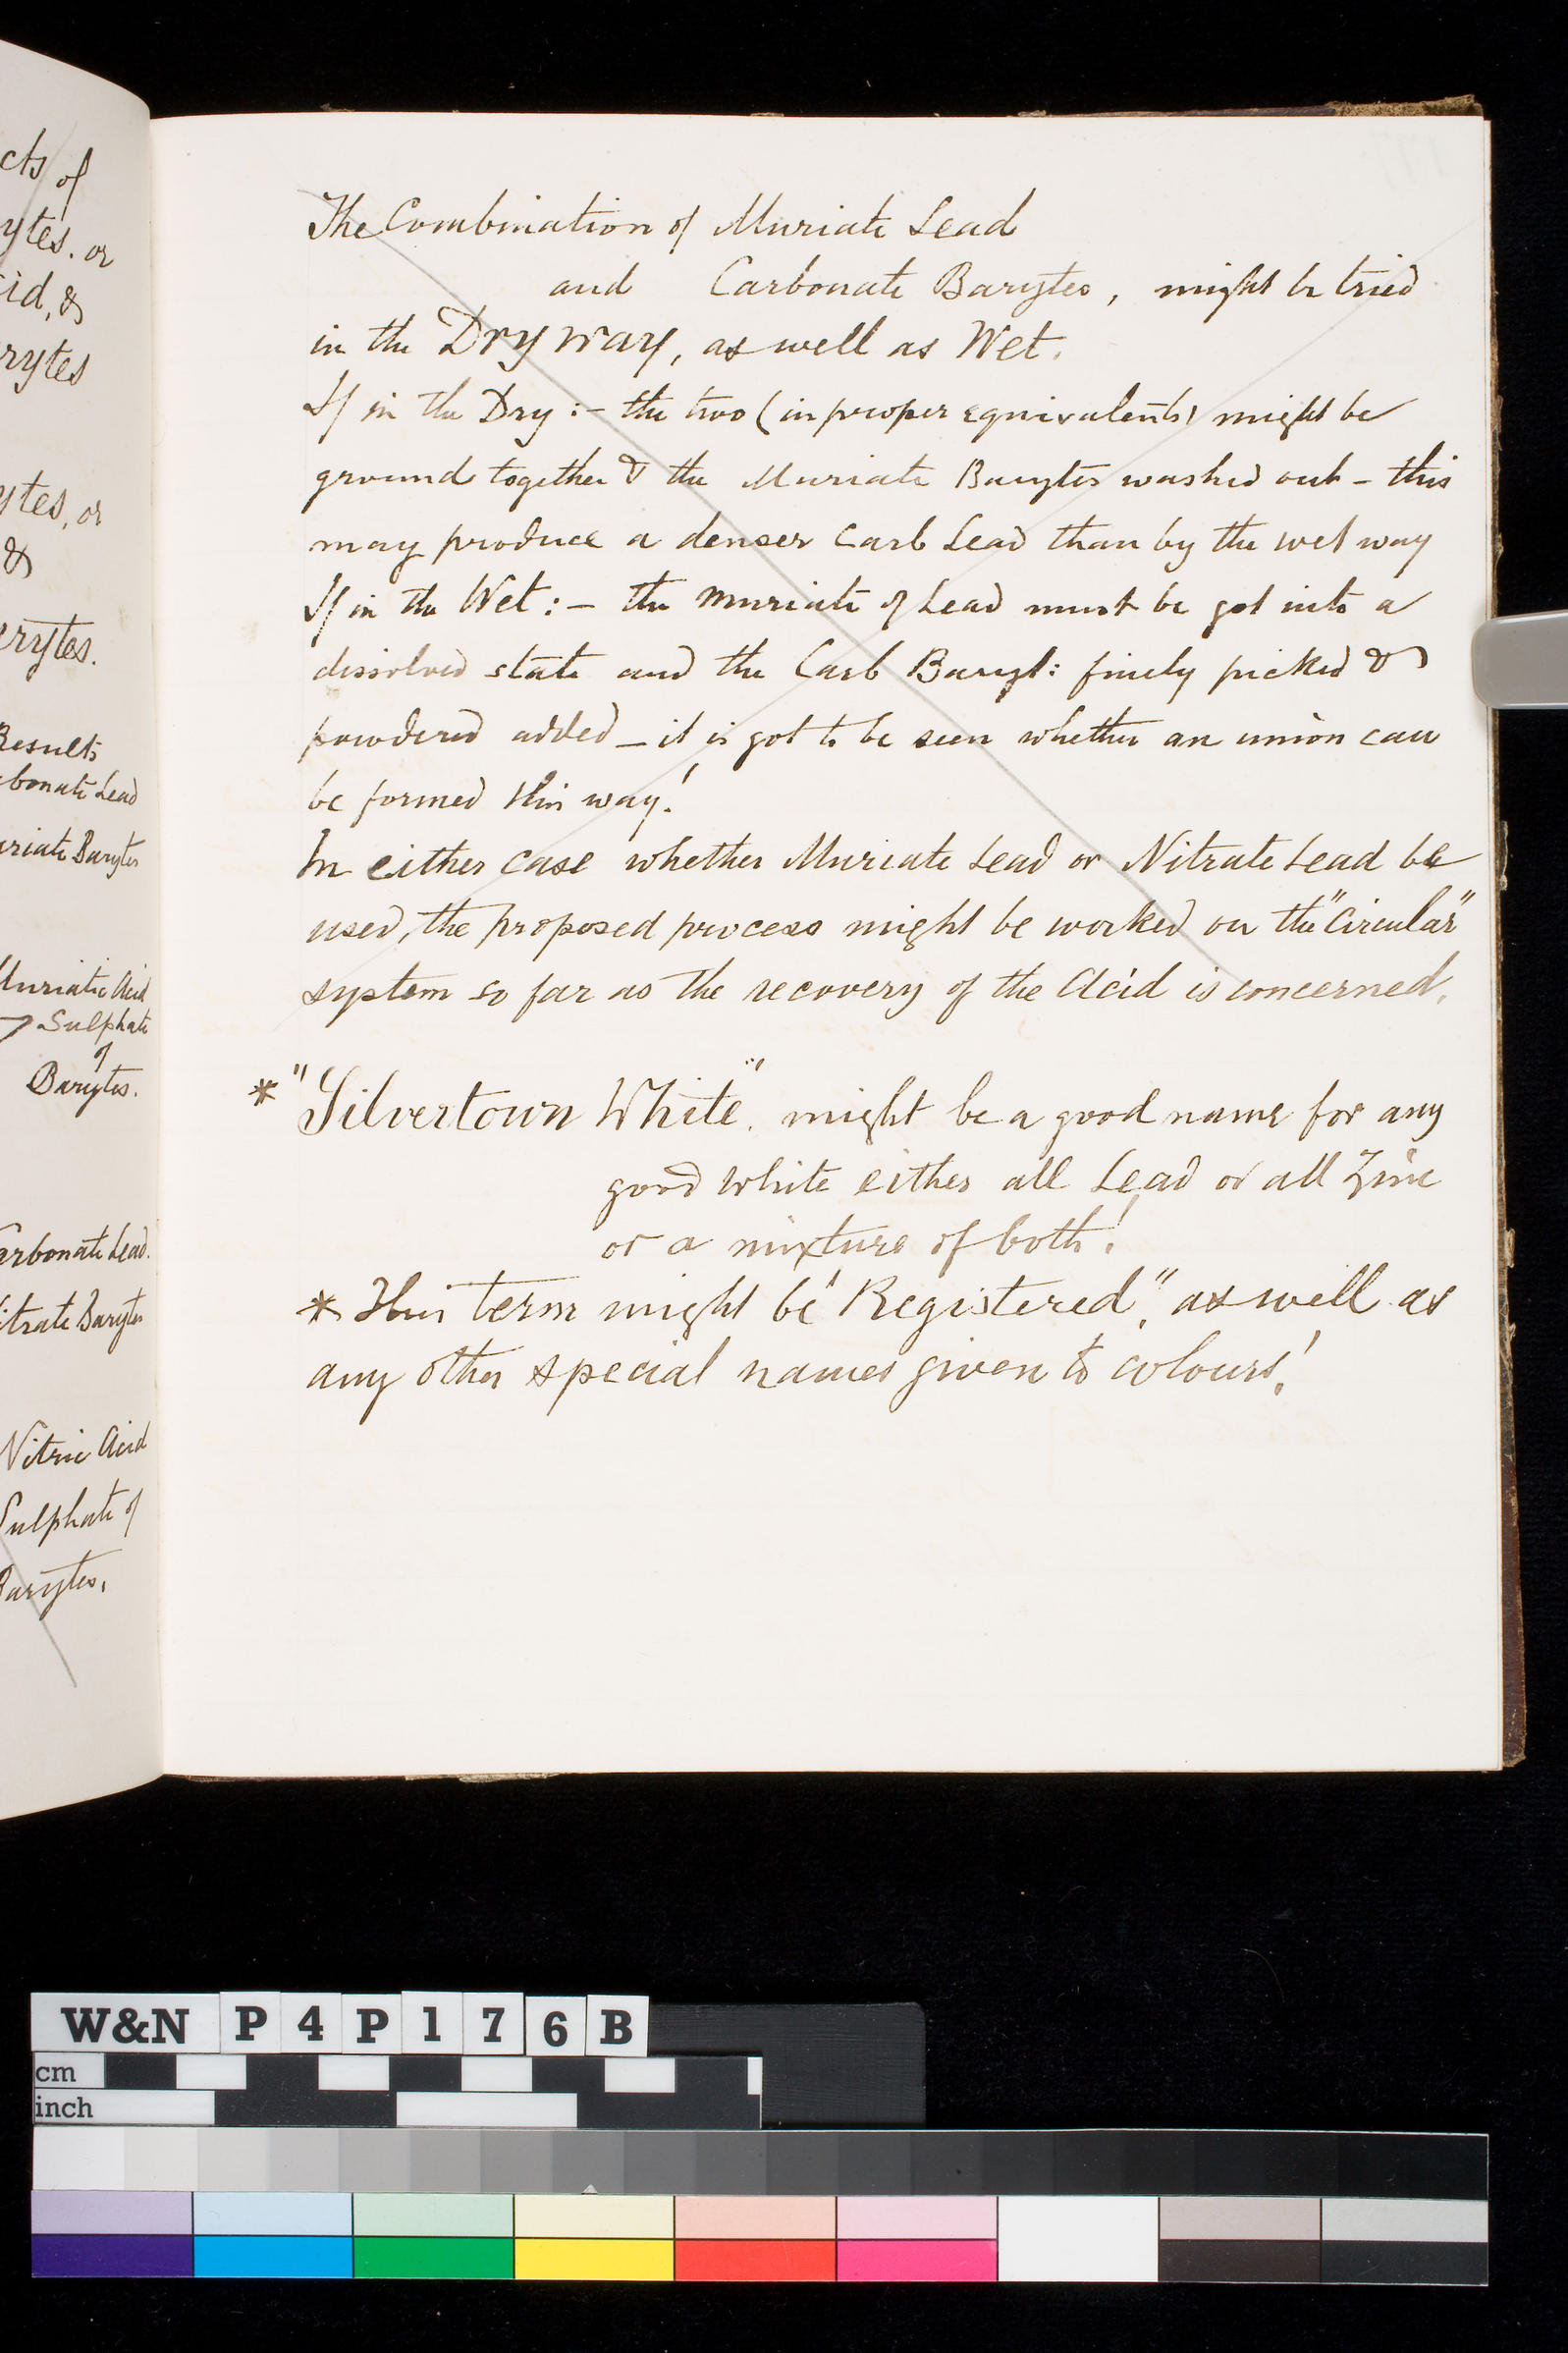 cts of
ytes. or
cid, &
rytes
ytes, or
&
erytes.
Results
bonate Lead
uriate Barytes
Muriatic Acid
Sulphate
of
Barytes.
arbonate Lead.
itrate Barytes
Nitric Acid
Sulphate of
Barytes.
The Combination of Muriate Lead
and Carbonate Barytes, might be tried
in the Dry way, as well as Wet.
If in the Dry :- the two (in proper equivalents) might be
ground together & the Muriate Barytes washed out - this
may produce a denser Carb Lead than by the wet way
If in the Wet :- the muriate of Lead must be got into a
dissolved state and the Carb Baryt: finely picked &
powdered added - it is got to be seen whether an union can
be formed this way!
In either case whether Muriate Lead or Nitrate Lead be
used, the proposed process might be worked on the "Circular"
system so far as the recovery of the Acid is concerned.
* "Silvertown White". might be a good name for any
good white either all Lead or all Zinc
or a mixture of both!
* This term might be "Registered", as well as
any other special names given to colours!
W&N P4P176B
cm
inch